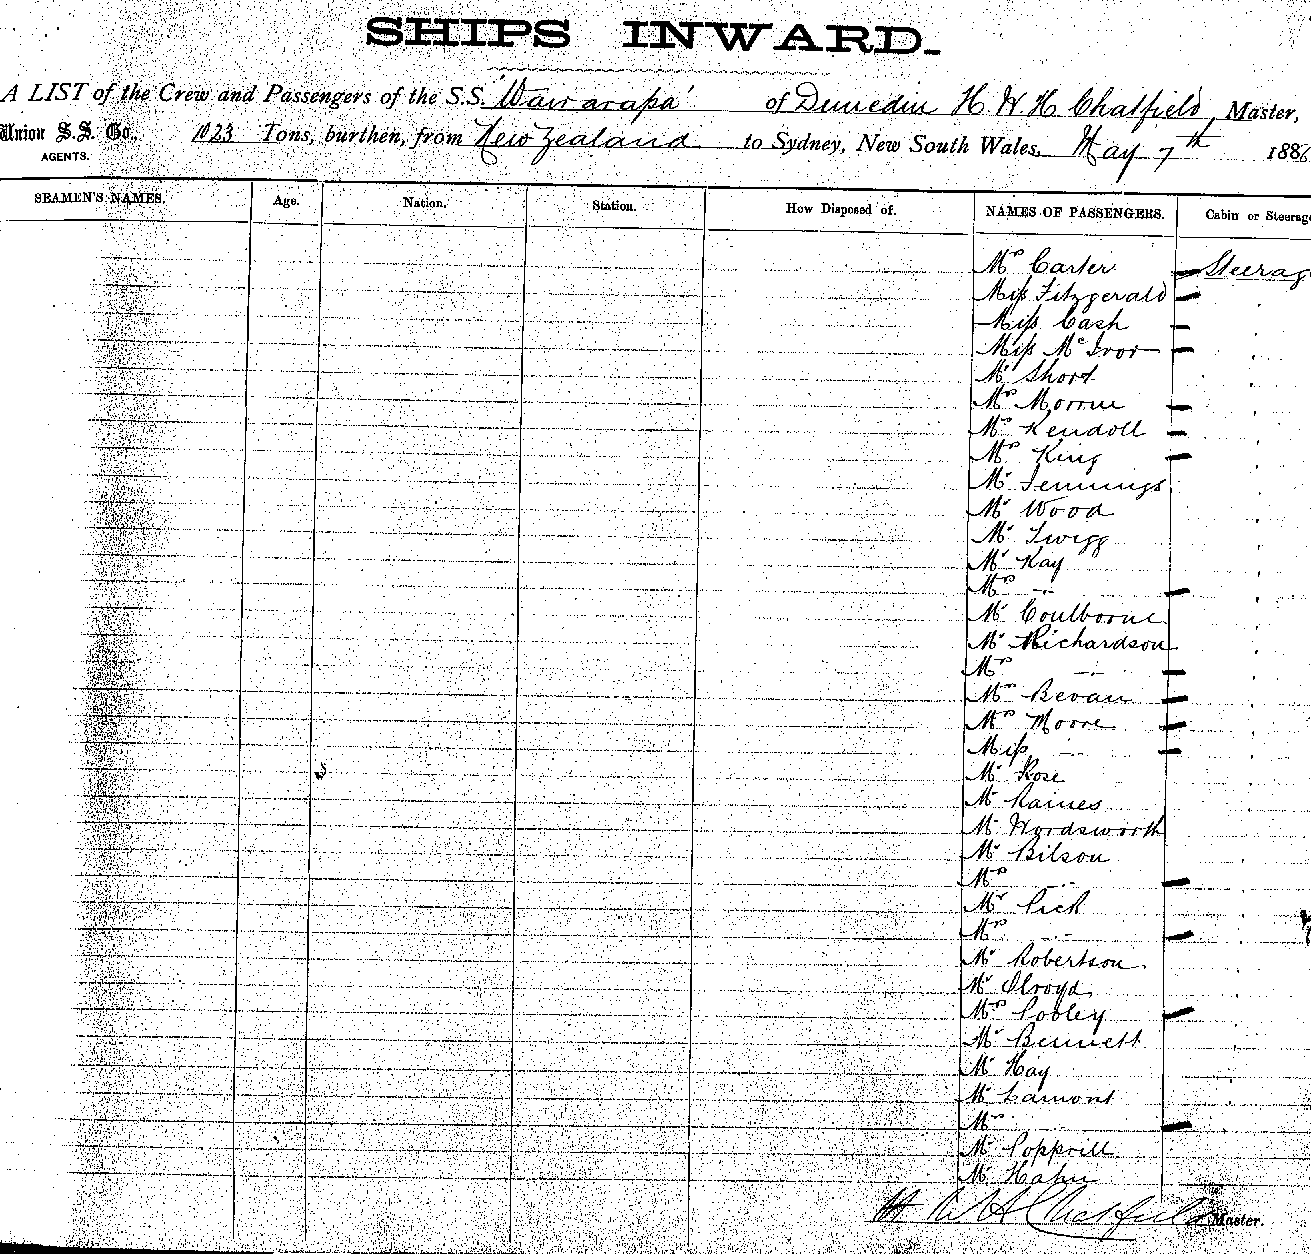 SHIPS INWARD.
A LIST of the Crew and Passengers of the S.S. 'Wairarapa' of Dunedin H. W. H. Chatfield, Master,
Union S.S. Co., 1023 Tons, burthen, from New Zealand to Sydney, New South Wales, May 7th 1886
AGENTS.
SEAMEN'S NAMES. Age. Nation. Station. How Disposed of. NAMES OF PASSENGERS. Cabin or Steerage
Mrs Carter Steerag
Miss Fitzgerald
Miss Cash
Miss McIvor
Mr Short
Mrs
Mrs Kendoll
Mrs King
Mr Jennings
Mr Wood
Mr Twigg
Mr Kay
Mrs -"-
Mr Coulborne
Mr Richardson
Mrs -"-
Mrs Bevan
Mrs Moore
Miss -"-
Mr Rose
Mr Raines
Mr Wordsworth
Mr Bilson
Mrs -"-
Mr Pick
Mrs -"-
Mr Robertson
Mr Olroyd
Mrs Pooley
Mr Bennett
Mr Hay
Mr Lamont
Mrs
Mr
Mr Hahn
H. W. H. Chatfield Master.